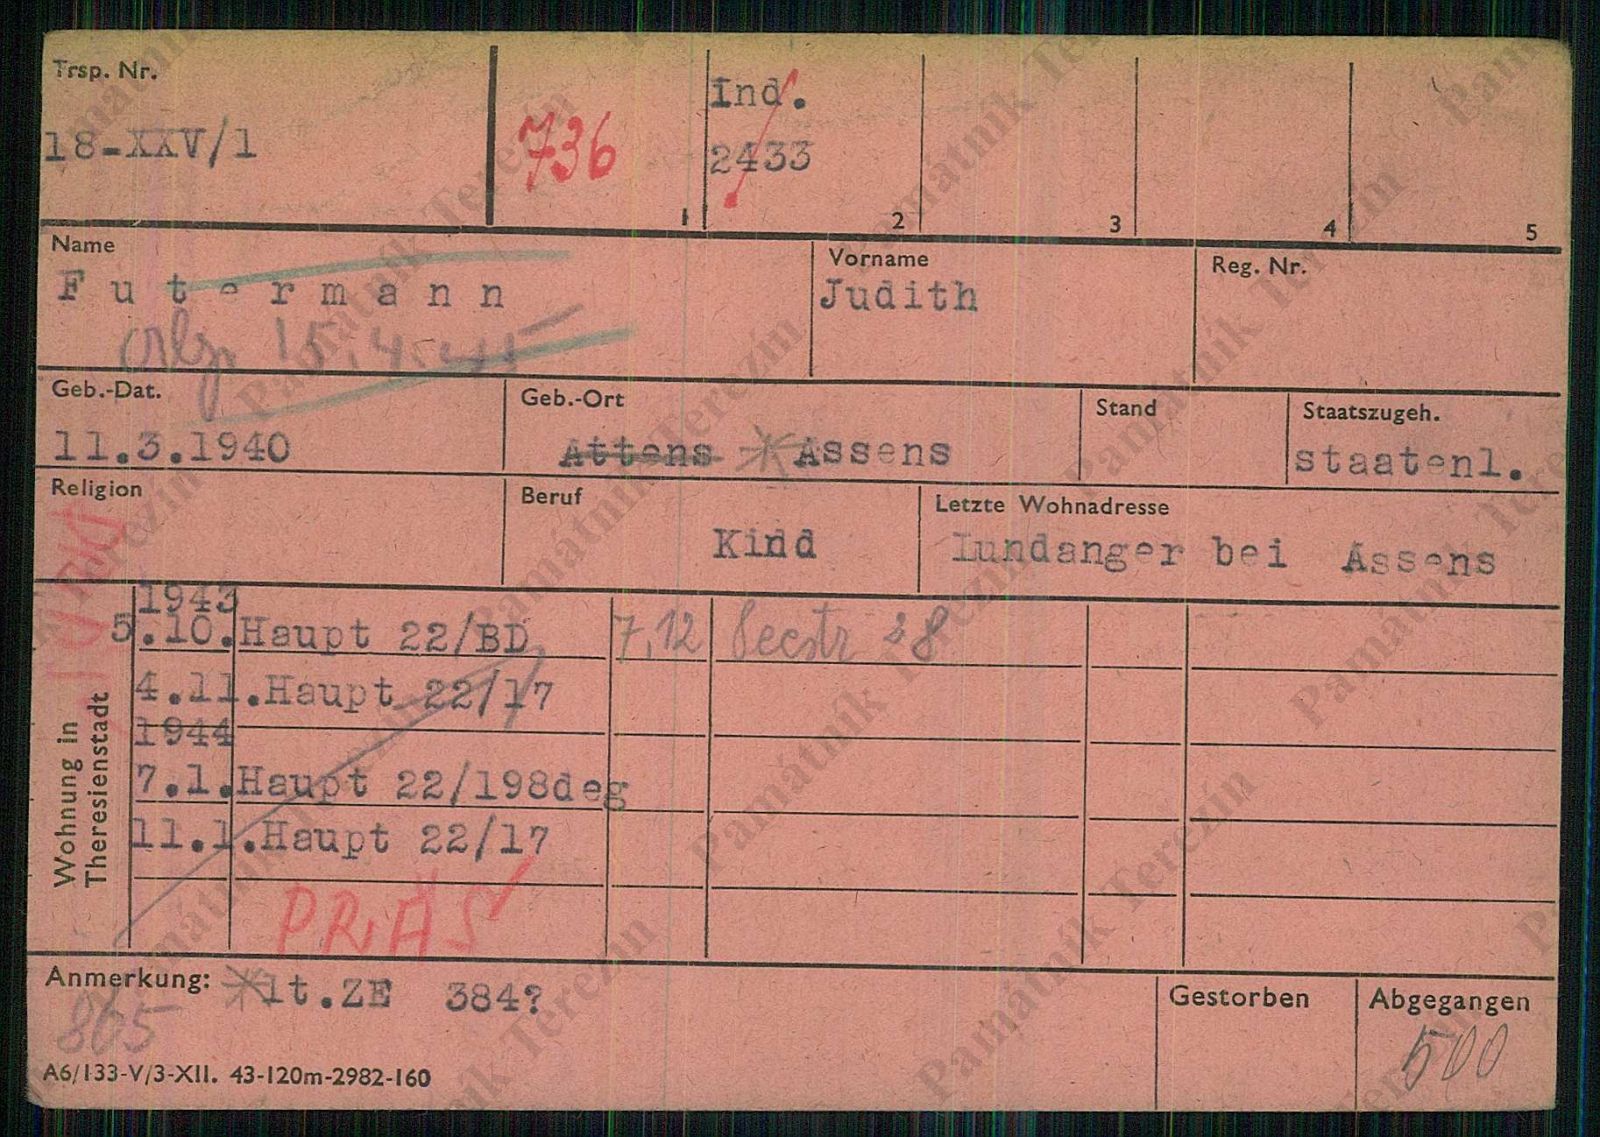 Trsp. Nr.
18-XXV/1
736
Ind.
2433
1
2
3
4
5
Name
Futermann
Vorname
Judith
Reg. Nr.
15.4.45
Geb.-Dat.
11.3.1940
Geb.-Ort
Attens * Assens
Stand
Staatszugeh.
staatenl.
Religion
Beruf
Kind
Letzte Wohnadresse
Lundanger bei Assens
Wohnung in
Theresienstadt
1943
5.10. Haupt 22/BD 7.12 Seestr 28
4.11. Haupt 22/17
1944
7.1. Haupt 22/198deg
11.1. Haupt 22/17
PRÄS
Anmerkung: *lt.ZE 384?
865
Gestorben
Abgegangen
500
A6/133-V/3-XII. 43-120m-2982-160
Památník Terezín